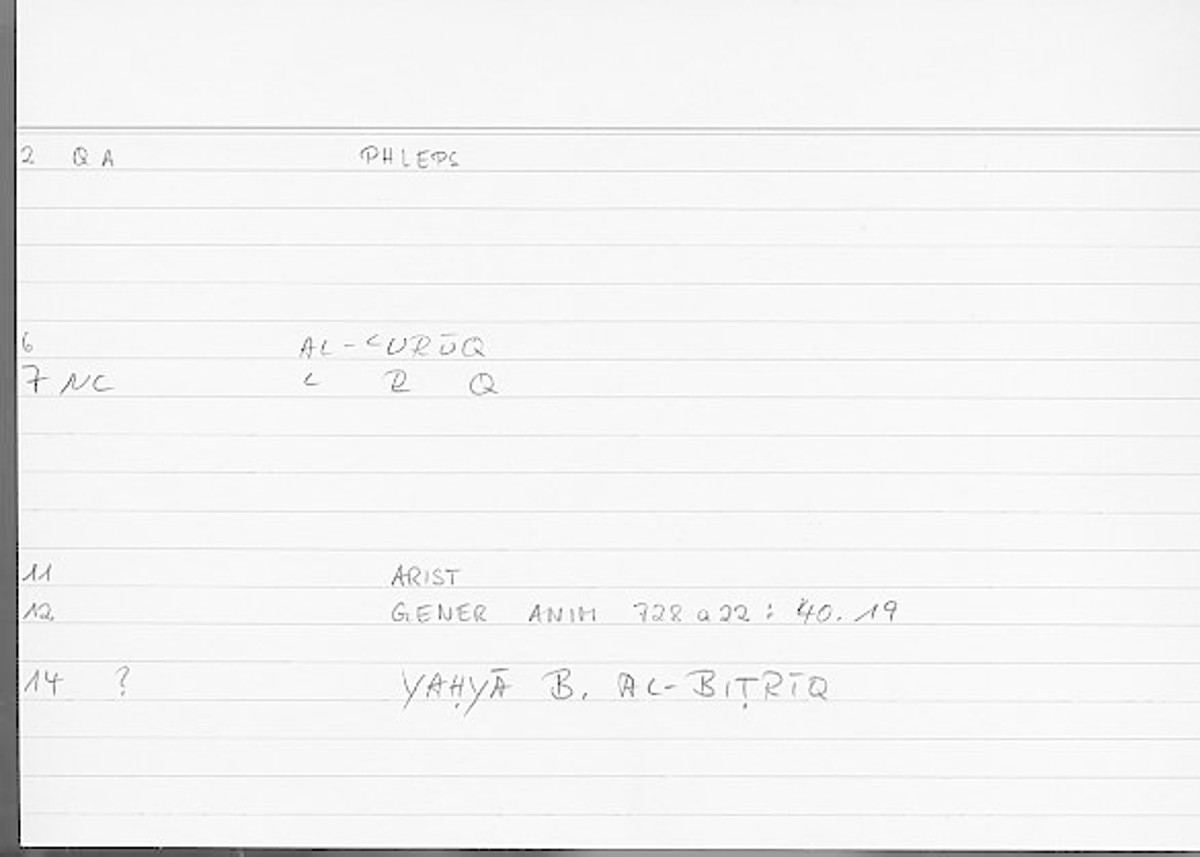 2 QA PHLEPS
6 AL-ʿURŪQ
7 NC ʿ R Q
11 ARIST
12 GENER ANIM 728a22: 40.19
14 ? YAḤYĀ B. AL-BIṬRĪQ